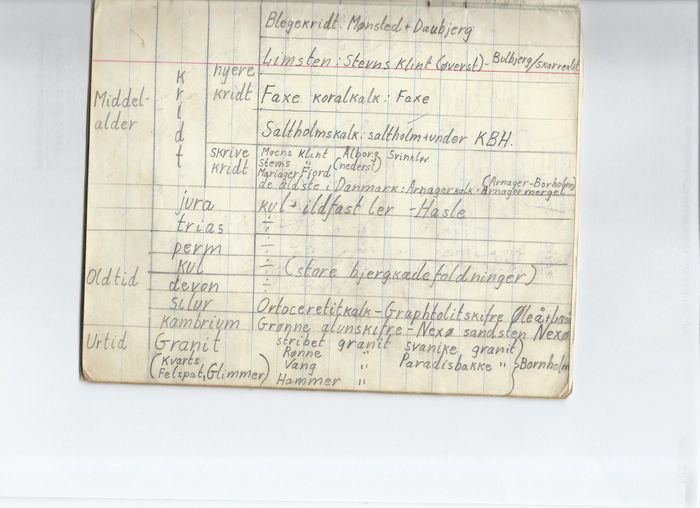 Blegekridt. Mønsled + Daubjerg
Limsten : Stevns Klint (øverst) - Bulbjerg/skarreklit
nyere kridt
Faxe koralkalk : Faxe
Middel-alder
kridt
Saltholmskalk : saltholm + under KBH.
skrive kridt
Moens Klint Ålborg Svinkløv
Stevns " (nederst)
Mariager Fjord
de ældste i Danmark : Arnagerkalk + Arnagermergel (Arnager-Borholm)
jura kul + ildfast ler - Hasle
trias ÷
perm ÷
kul ÷ (store bjergkædefoldninger)
Oldtid
devon ÷
silur Ortoceretitkalk - Graphtolitskifre Øleå +
kambrium Grønne glunskifre - Nexø sandsten Nexø
Urtid Granit stribet granit svanike granit
(Kvarts Rønne "
Felspat, Glimmer) Vang " Paradisbakke " } Bornholm
Hammer "